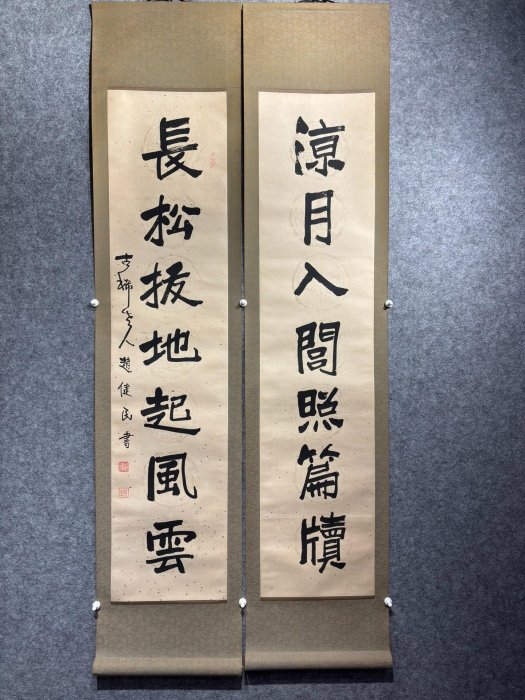 涼月入閭照篇牘
長松拔地起風雲
古稀老人趙健民書